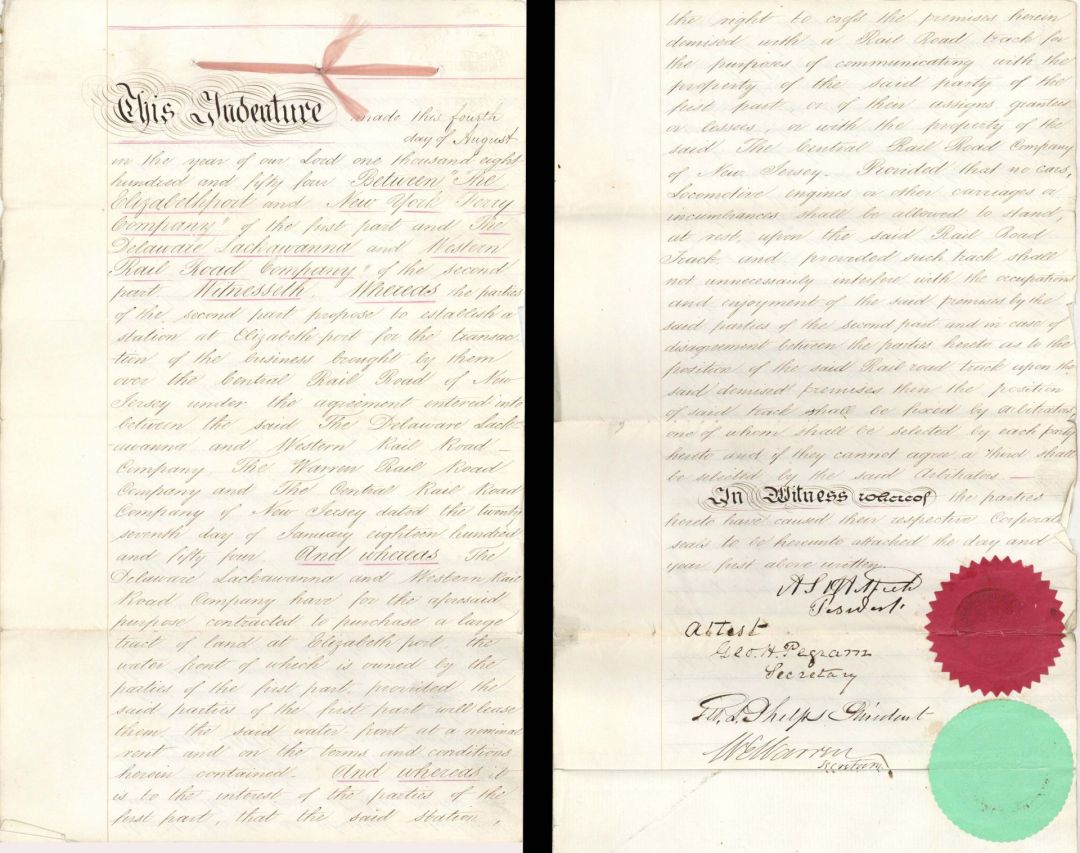 This Indenture made this fourth
day of August
in the year of our Lord one thousand eight
hundred and fifty four Between "The
Elizabethport and New York Ferry
Company" of the first part and The
Delaware Lackawanna and Western
Rail Road Company" of the second
part Witnesseth. Whereas the parties
of the second part propose to establish a
station at Elizabeth port for the transac-
tion of the business brought by them
over the Central Rail Road of New
Jersey under the agreement entered into
between the said The Delaware Lack-
awanna and Western Rail Road
Company The Warren Rail Road
Company and The Central Rail Road
Company of New Jersey dated the twenty
seventh day of January eighteen hundred
and fifty four And whereas The
Delaware Lackawanna and Western Rail
Road Company have for the aforesaid
purpose contracted to purchase a large
tract of land at Elizabeth port, the
water front of which is owned by the
parties of the first part, provided the
said parties of the first part will lease
them the said water front at a nominal
rent and on the terms and conditions
herein contained. And whereas it
is to the interest of the parties of the
first part, that the said station,
the right to cross the premises herein
demised with a Rail Road track for
the purposes of communicating with the
property of the said party of the
first part or of their assigns, grantees
or lessees, or with the property of the
said The Central Rail Road Company
of New Jersey. Provided that no cars,
Locomotive engines or other carriages or
incumbrances shall be allowed to stand,
at rest, upon the said Rail Road
Track and provided such track shall
not unnecessarily interfere with the occupations
and enjoyment of the said premises by the
said parties of the second part and in case of
disagreement between the parties hereto as to the
position of the said Rail road track upon the
said demised premises then the position
of said track shall be fixed by arbitrators,
one of whom shall be selected by each party
hereto and if they cannot agree a third shall
be selected by the said Arbitrators.
In Witness whereof the parties
hereto have caused their respective Corporate
seals to be hereunto attached the day and
year first above written.
President.
Attest
Geo. H. Pegram
Secretary
Phelps President
Warren
Secretary